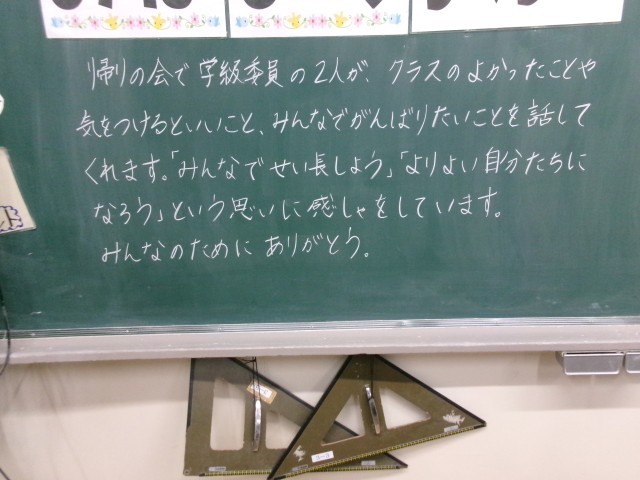 帰りの会で学級委員の2人が、クラスのよかったことや
気をつけるといいこと、みんなでがんばりたいことを話して
くれます。「みんなでせい長しよう」「よりよい自分たちに
なろう」という思いに感しゃをしています。
みんなのために ありがとう。